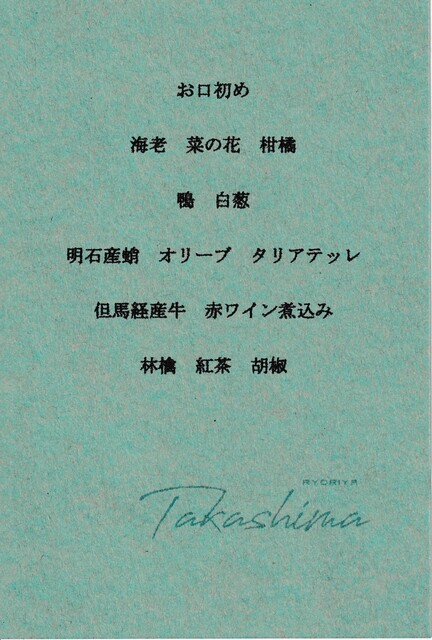 お口初め
海老　菜の花　柑橘
鴨　白葱
明石産蛸　オリーブ　タリアテッレ
但馬経産牛　赤ワイン煮込み
林檎　紅茶　胡椒
RYORIYA
Takashima